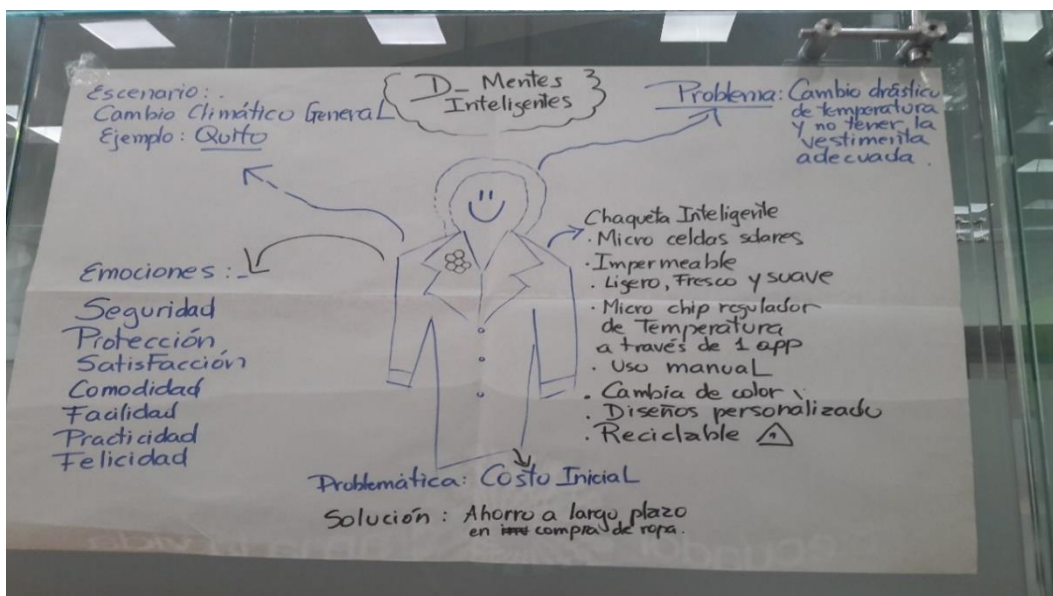 D_ Mentes
Inteligentes
Escenario:.
Cambio Climático General
Ejemplo: Quito
Problema: Cambio drástico
de temperatura
y no tener la
vestimenta
adecuada.
Emociones:
Seguridad
Protección
Satisfacción
Comodidad
Facilidad
Practicidad
Felicidad
Chaqueta Inteligente
· Micro celdas solares
· Impermeable
· Ligero, Fresco y suave
· Micro chip regulador
de Temperatura
a través de 1 app
· Uso manual
· Cambia de color
· Diseños personalizado
· Reciclable
Problemática: Costo Inicial
Solución: Ahorro a largo plazo
en compra de ropa.